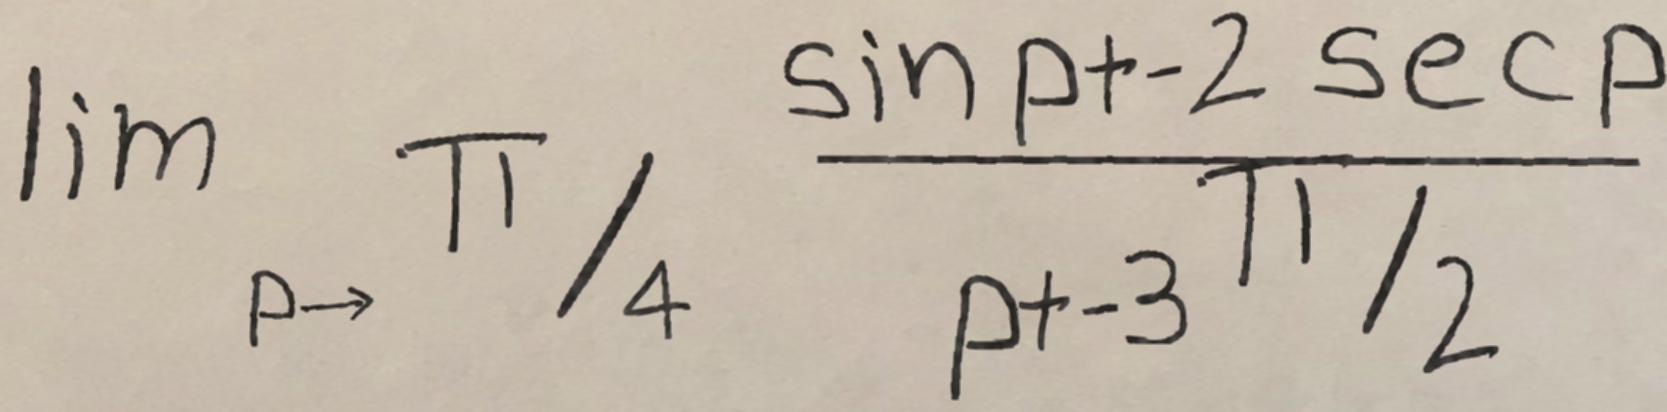 lim p→ π/4 (sin pt-2 sec p)/(pt-3 π/2)